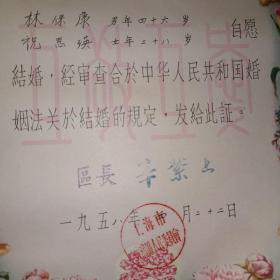 林保康 男年四十六岁
祝思瑛 女年二十八岁 自愿
結婚，經審查合於中华人民共和国婚
姻法关於結婚的規定，发給此証。
區長
一九五八年 月二十二日
上海市